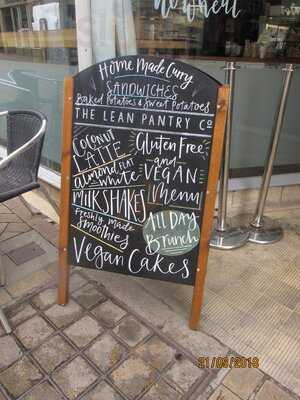 nowhere!
Home Made Curry
SANDWICHES
Baked Potatoes & Sweet Potatoes
THE LEAN PANTRY Co
COCONUT
LATTE
almond FLAT
white
MILKSHAKES
Freshly made
smoothies
Gluten Free
and
VEGAN
Menu
All DAY
Brunch
Vegan Cakes
21/09/2018